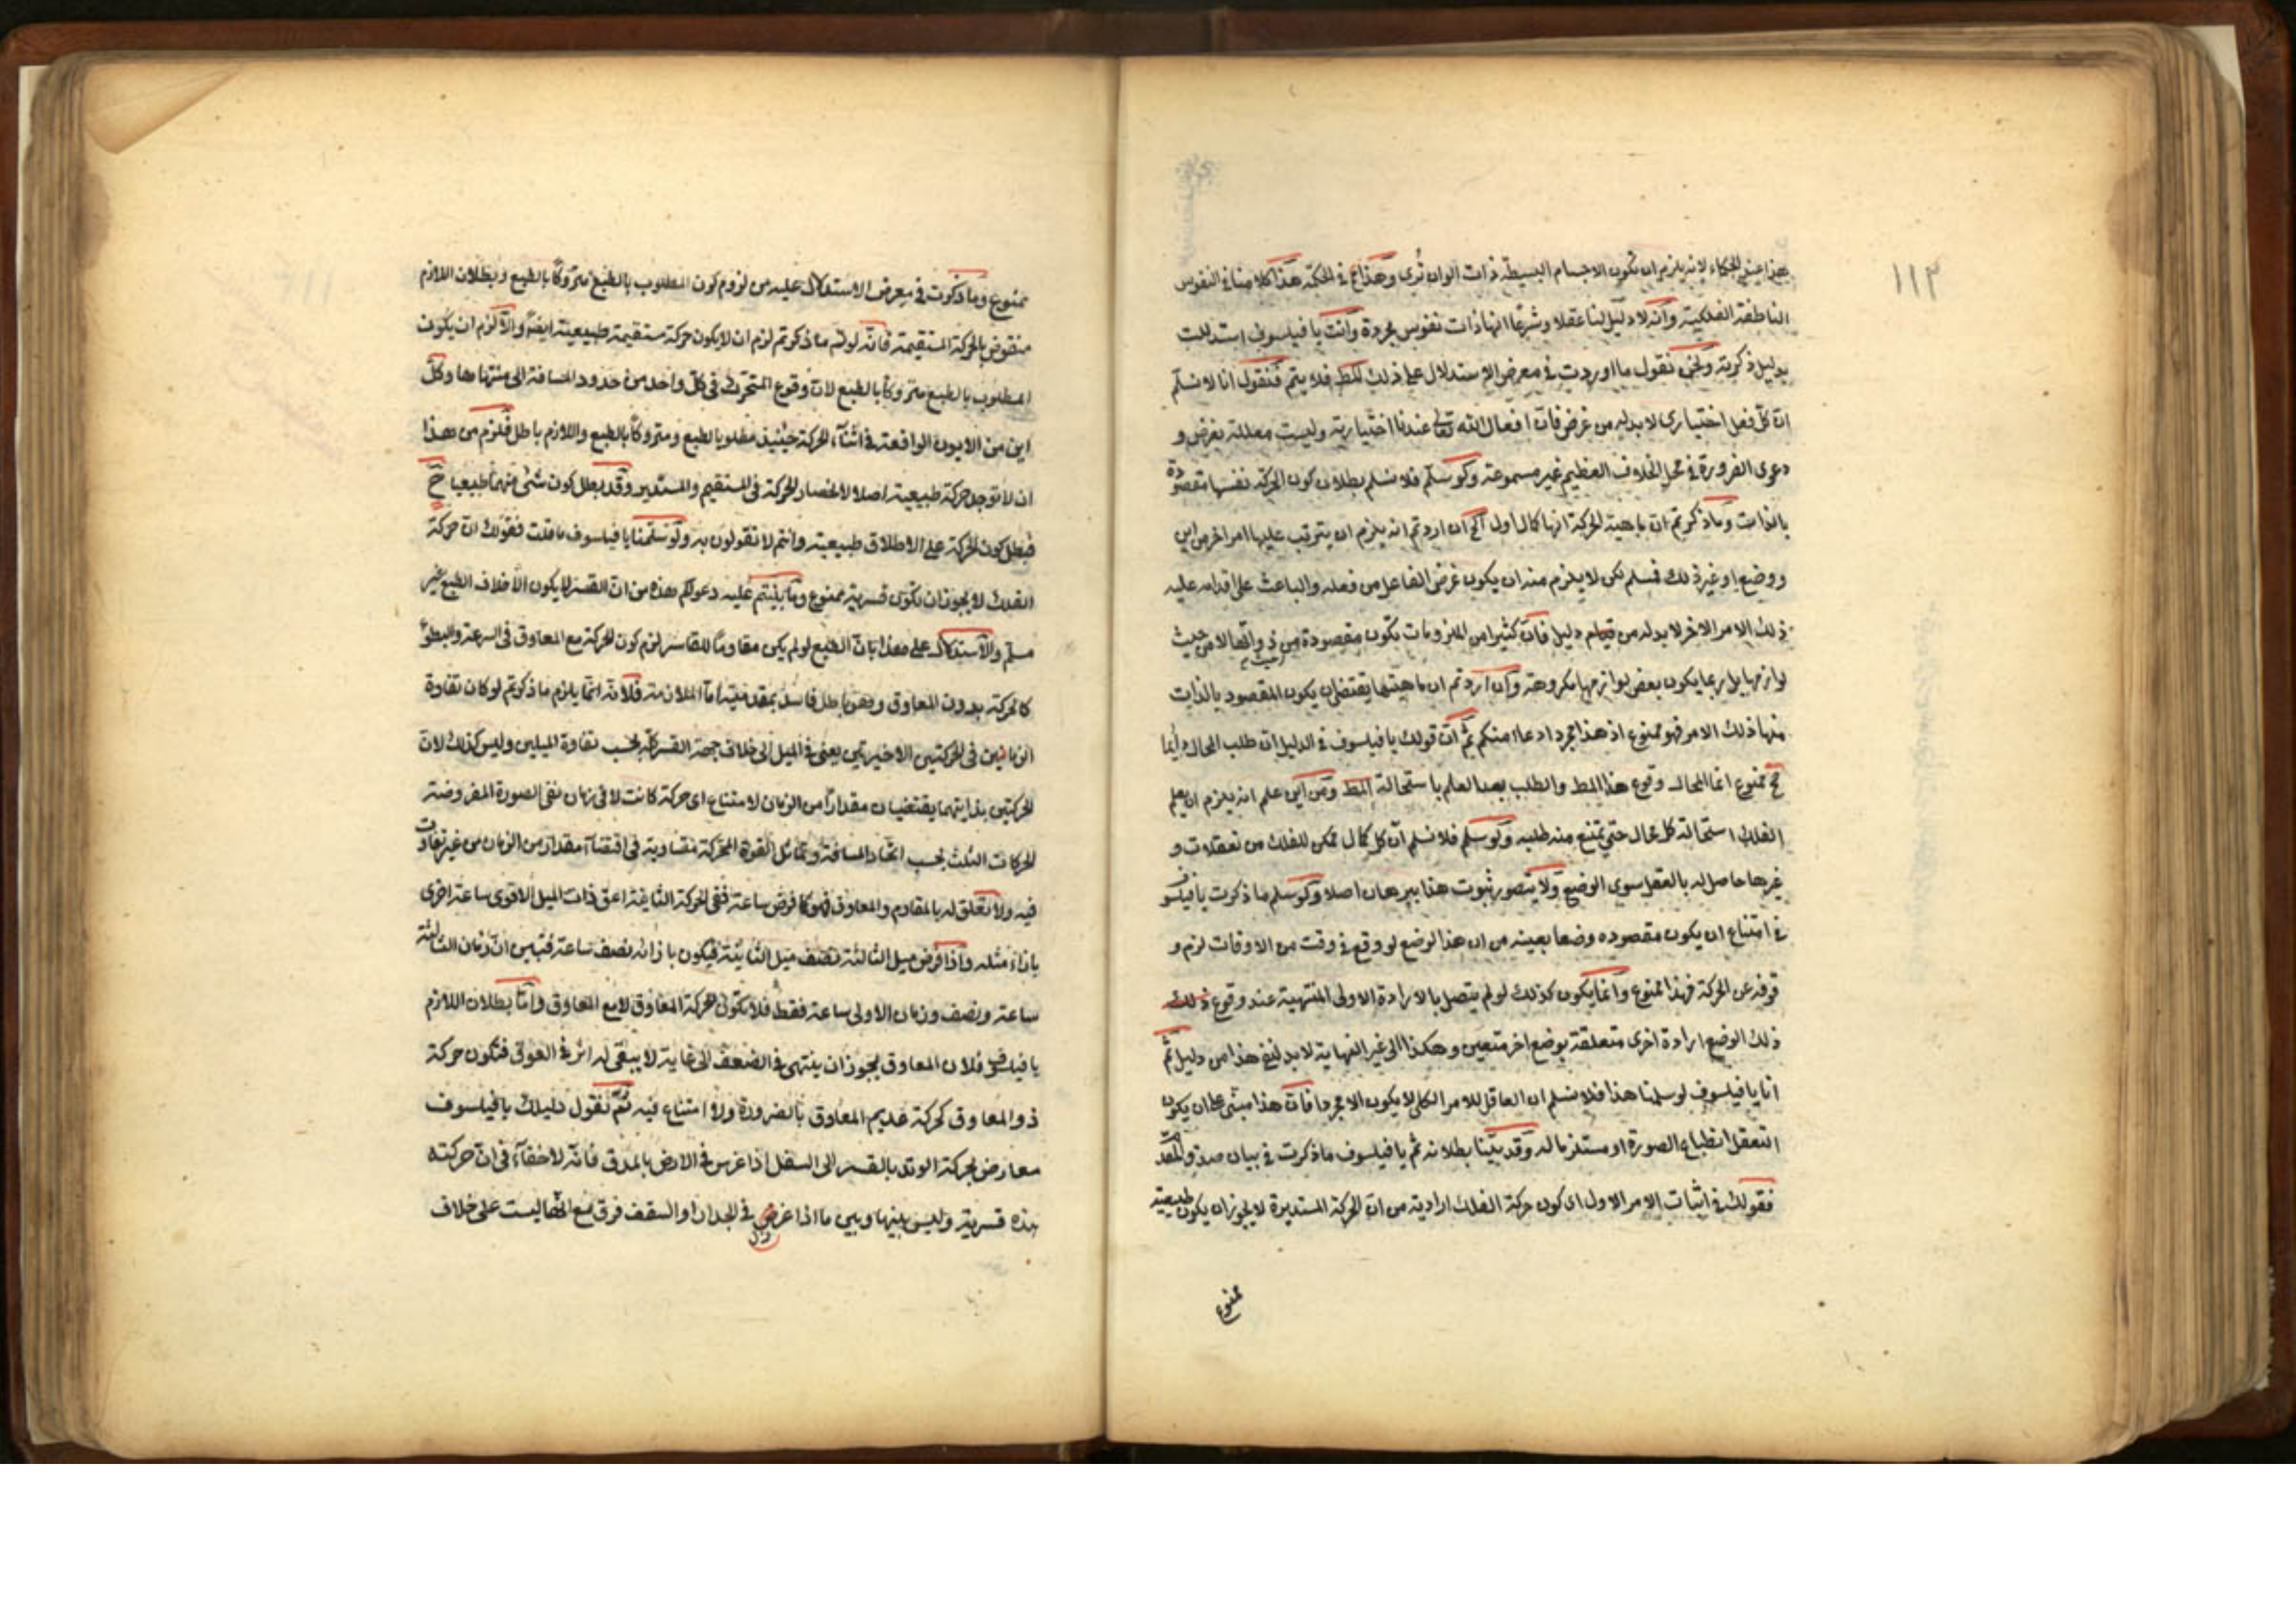 ١١٢
بهذا عند الحكماء لانه يلزم ان تكون الاجسام البسيطة ذات الوان تُرى وهذا في الحكمة هذا كلامنا في النفوس
الناطقة الفلكية وانه لا دليل لنا عقلا وشرعا انها ذات نفوس مجردة وانت يا فيلسوف استدللت
بدليل ذكرته ونحن نقول ما اوردت في معرض الاستدلال على ذلك المط فلا يتم فنقول انا لا نسلّم
انّ كلّ فعل اختياري لا بد له من غرض فانّ افعال الله تعالى عندنا اختيارية وليست معللة بغرض و
دعوى الضرورة في محل الخلاف العظيم غير مسموعة ولو سلّم فلا نسلم بطلان كون الحركة نفسها مقصودة
بالذات وما ذكرتم انّ ماهية الحركة انها كمال اول الخ ان اردتم انه يلزم ان يترتب عليها امر اخر من اين
ووضع او غير ذلك فمسلم لكن لا يلزم منه ان يكون غرض الفاعل من فعله والباعث على اقدامه عليه
ذلك الامر الاخر لا بد له من قيام دليل فانّ كثيرا من الملزومات تكون مقصودة من ذواتها لا من حيث
لوازمها بل ربما يكون بعض لوازمها مكروهة وان اردتم ان ماهيتها يقتضي ان يكون المقصود بالذات
منها ذلك الامر فهو ممنوع اذ هذا مجرد ادعاء منكم ثم انّ قولك يا فيلسوف في الدليل انّ طلب المحال دايما
مح ممنوع انما المحال وقوع هذا المط والطلب بعد العلم باستحالة المط ومن اين علم انه يلزم ان يعلم
الفلك استحالة كل محال حتى يمتنع منه طلبه ولو سلم فلا نسلم انّ كل كمال ممكن للفلك من تعقلات و
غيرها حاصل له بالعقل سوى الوضع ولا يتصور ثبوت هذا ببرهان اصلا ولو سلم ما ذكرت يا فيلسوف
في امتناع ان يكون مقصوده وضعا بعينه من ان هذا الوضع لو وقع في وقت من الاوقات لزم و
قوفه عن الحركة فهذا ممنوع وانما يكون كذلك لو لم يتصل بالارادة الاولى المنتهية عند وقوع ذلك
ذلك الوضع ارادة اخرى متعلقة بوضع اخر متعين وهكذا الى غير النهاية لا بد لنفي هذا من دليل ثم
انا يا فيلسوف لو سلمنا هذا فلا نسلم ان العاقل للامر الكلي لا يكون الا مجردا فانّ هذا مبني على ان يكون
التعقل انطباع الصورة او مستلزما له وقد بيّنا بطلانه ثم يا فيلسوف ماذكرت في بيان صدق المقدمة
فقولك في اثبات الامر الاول اي كون حركة الفلك ارادية من انّ الحركة المستديرة لا يجوز ان يكون طبيعية
ممنوع
ممنوع وما ذكرت في معرض الاستدلال عليه من لزوم كون المطلوب بالطبع متروكًا بالطبع وبطلان اللازم
منقوض بالحركة المستقيمة فانّه لو تم ما ذكرتم لزم ان لا يكون حركة مستقيمة طبيعية ايضًا والا لزم ان يكون
المطلوب بالطبع متروكًا بالطبع لانّ وقوع المتحرك في كلّ واحد من حدود المسافة الى منتهاها وكلّ
اين من الايون الواقعة في اثناء الحركة حينئذ مطلوبا لطبع ومتروكًا بالطبع واللازم باطل فلزم من هذا
ان لا توجد حركة طبيعية اصلا لانحصار الحركة في المستقيم والمستدير وقد بطل كون شئ منهما طبيعيا ح
فبطل كون الحركة على الاطلاق طبيعية وانتم لا تقولون به ولو سلّمنا يا فيلسوف ما قلت فقولك انّ حركة
الفلك لا يجوز ان تكون قسرية ممنوع وما بنيتم عليه دعواكم هذه من انّ القسر لا يكون الا خلاف الطبع غير
مسلّم والاستدلال على هذا بانّ الطبع لو لم يكن مقاومًا للقاسر لزم كون الحركة مع المعاوق في السرعة والبطؤ
كالحركة بدون المعاوق وهو باطل فاسد بمقدمتيه اما الملازمة فلانه انّما يلزم ما ذكرتم لو كان تفاوت
الزمانين في الحركتين الاخيرتين يعني في الميل الى خلاف جهة القسر بحسب تفاوت الميلين وليس كذلك لانّ
الحركتين بذاتيهما يقتضيان مقدارًا من الزمان لامتناع اي حركة كانت لا في زمان نفي الصورة المفروضة
الحركات الثلث بحسب اتحاد المسافة وتماثل القوة المحركة متساوية في اقتضاء مقدار من الزمان من غير تفاوت
فيه ولا تعلق له بالمقاوم والمعاوق فهو كما فرض ساعة ففي الحركة الثانية اعني ذات الميل الاقوى ساعة اخرى
بازاء مثله واذا فرض ميل الثالثة نصف ميل الثانية فيكون بازائه نصف ساعة فتبين انّ زمان الثالثة
ساعة ونصف وزمان الاولى ساعة فقط فلا تكون حركة المعاوق لا مع المعاوق وامّا بطلان اللازم
يا فيلسوف فلان المعاوق يجوز ان ينتهى في الضعف الى غاية لا يبقى له اثر في العوق فتكون حركة
ذو المعاوق كحركة عديم المعاوق بالضرورة ولا امتناع فيه ثم نقول دليلك يا فيلسوف
معارض بحركة الوتد بالقسر الى السفل اذا غرس في الارض بالمدق فانّه لا خفاء في انّ حركته
هذه قسرية وليس بينها وبين ما اذا غرض في الجدار او السقف فرق مع انّها ليست على خلاف